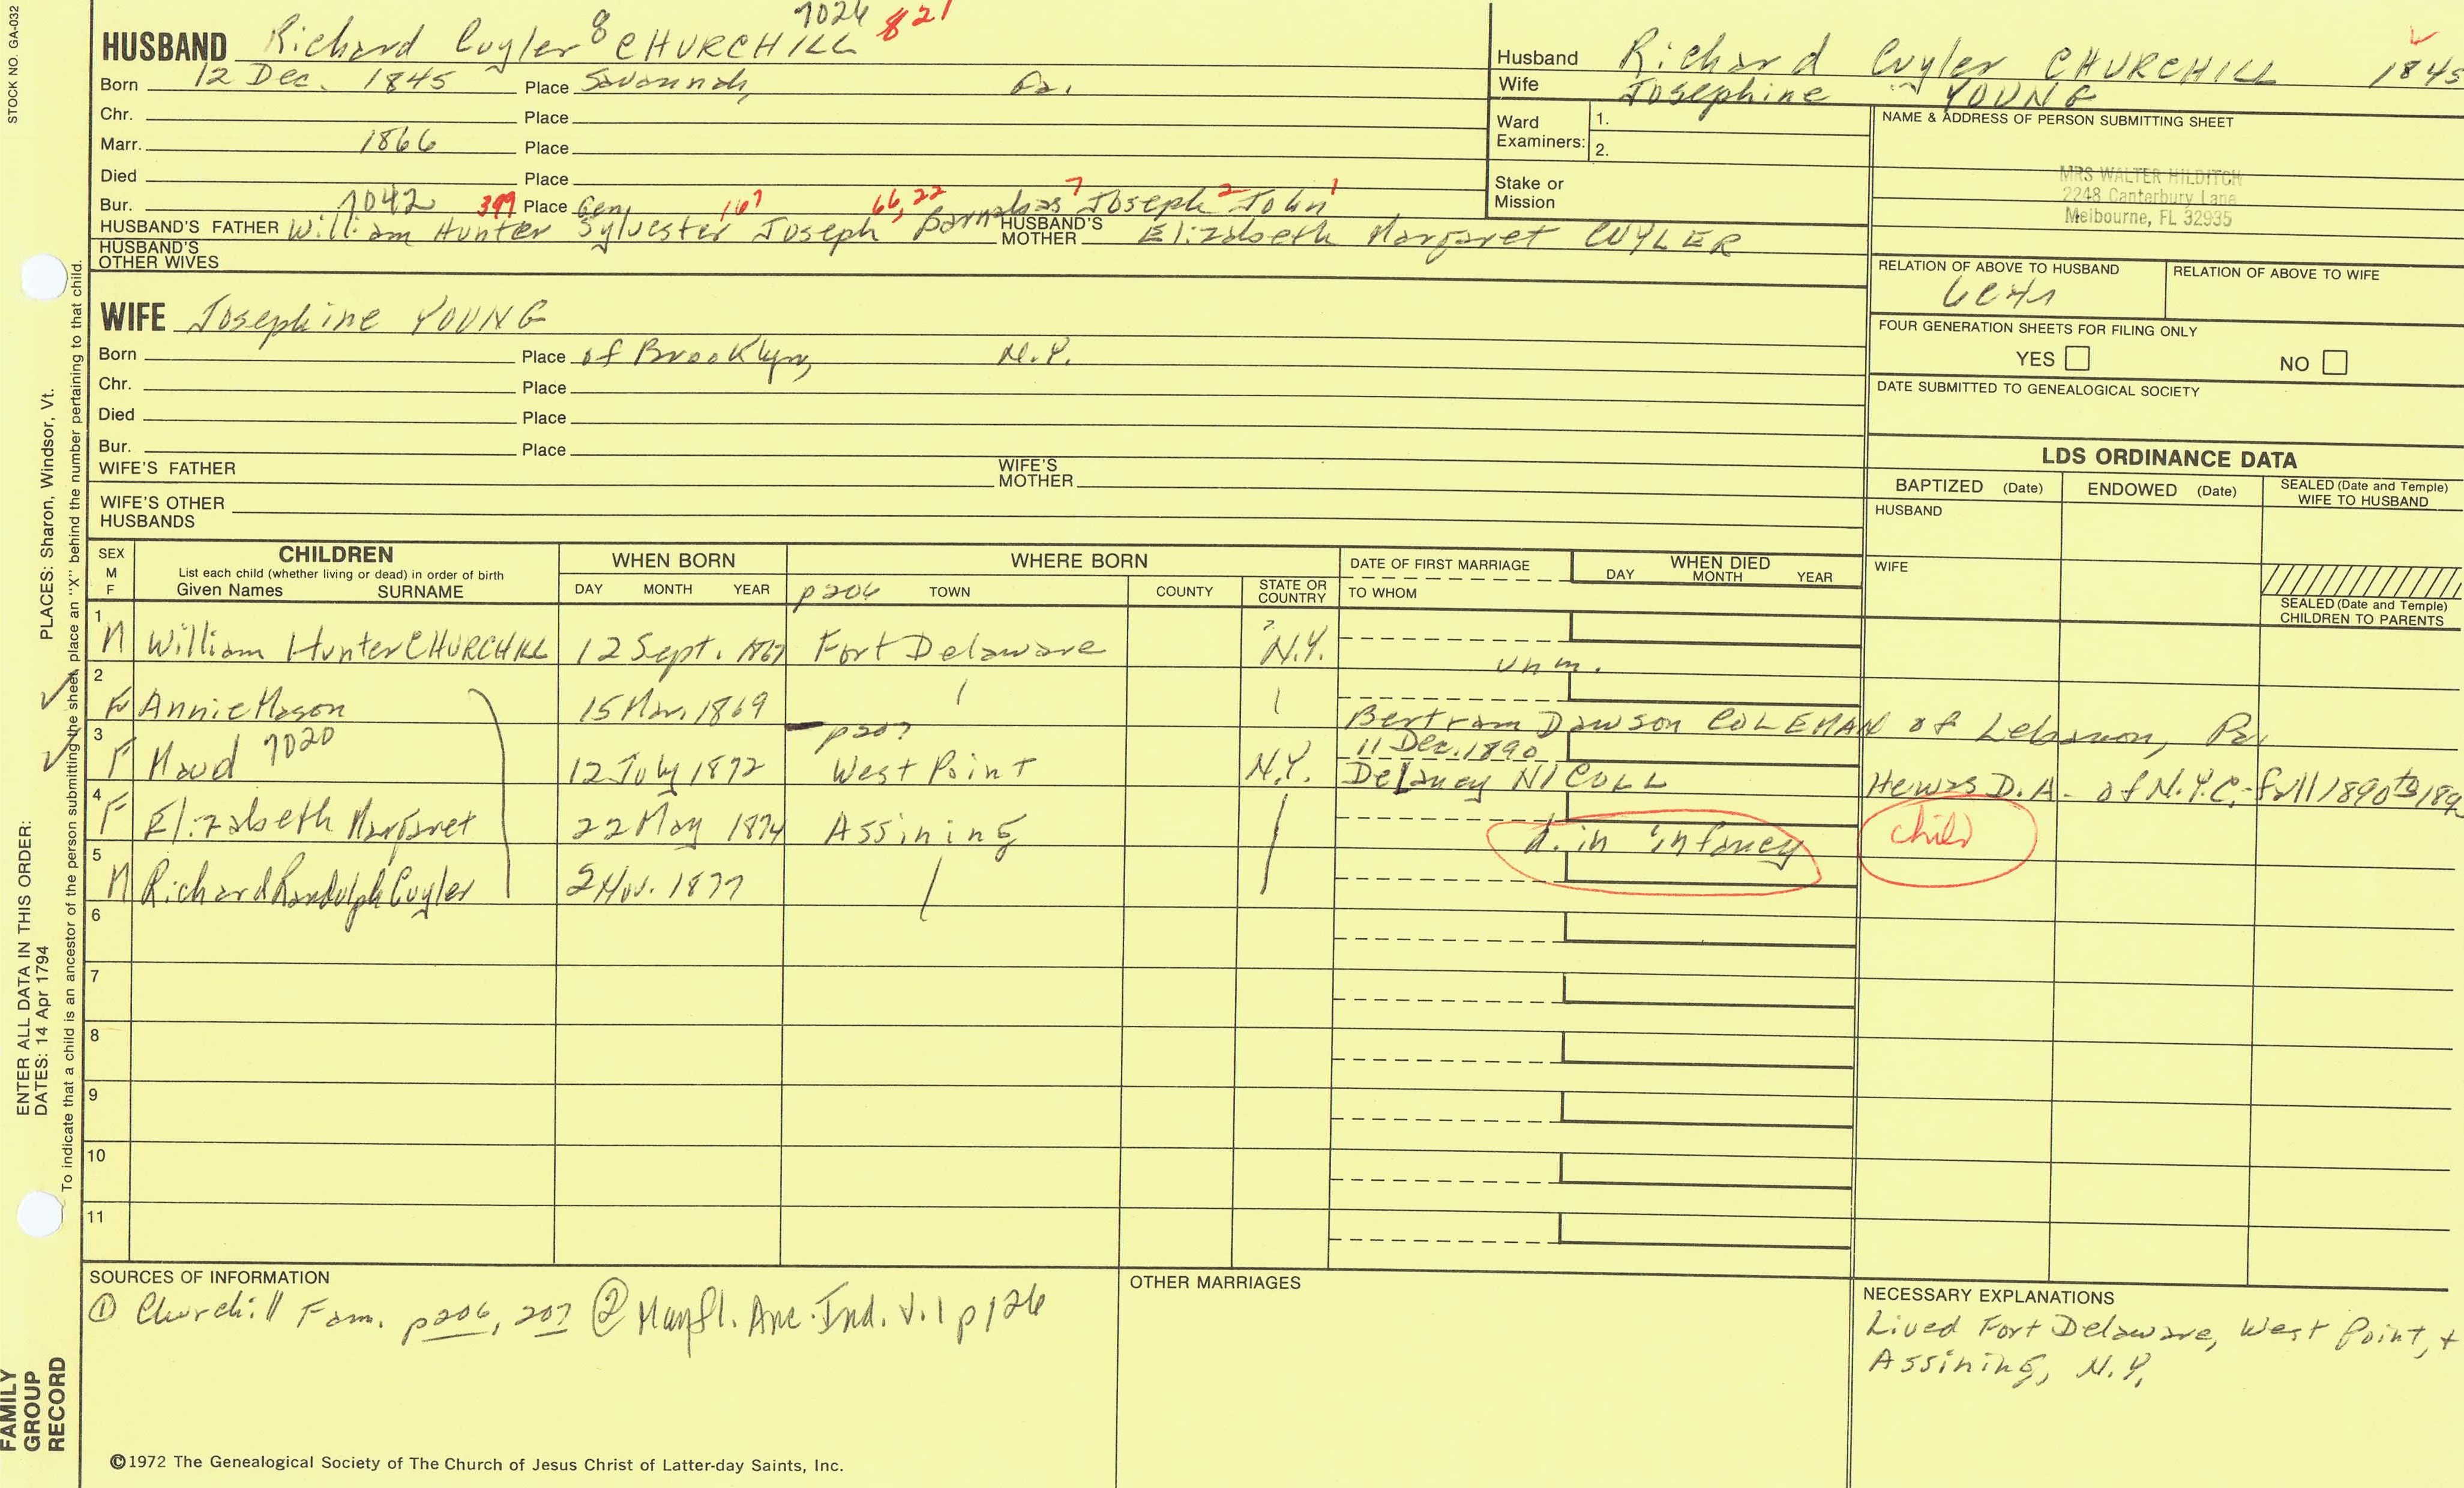 STOCK NO. GA-032
7024 821
HUSBAND Richard Cuyler 8 CHURCHILL
Born 12 Dec. 1845 Place Savannah, Ga.
Chr. Place
Marr. 1866 Place
Died Place
Bur. 7042 399 Place Gen. 167 66, 22 7 2 1
HUSBAND'S FATHER William Hunter Sylvester Joseph Barnabas Joseph John
HUSBAND'S MOTHER Elizabeth Margaret CUYLER
HUSBAND'S OTHER WIVES
Husband Richard Cuyler CHURCHILL 1845
Wife Josephine YOUNG
Ward Examiners: 1.
2.
Stake or Mission
NAME & ADDRESS OF PERSON SUBMITTING SHEET
MRS WALTER HILDITCH
2248 Canterbury Lane
Melbourne, FL 32935
RELATION OF ABOVE TO HUSBAND
RELATION OF ABOVE TO WIFE
FOUR GENERATION SHEETS FOR FILING ONLY
YES NO
DATE SUBMITTED TO GENEALOGICAL SOCIETY
WIFE Josephine YOUNG
Born Place of Brooklyn, N.Y.
Chr. Place
Died Place
Bur. Place
WIFE'S FATHER
WIFE'S MOTHER
WIFE'S OTHER HUSBANDS
LDS ORDINANCE DATA
BAPTIZED (Date) ENDOWED (Date) SEALED (Date and Temple) WIFE TO HUSBAND
HUSBAND
WIFE
SEALED (Date and Temple) CHILDREN TO PARENTS
SEX M F
CHILDREN
List each child (whether living or dead) in order of birth
Given Names SURNAME
WHEN BORN
DAY MONTH YEAR
WHERE BORN
p206 TOWN COUNTY STATE OR COUNTRY
DATE OF FIRST MARRIAGE
TO WHOM
WHEN DIED
DAY MONTH YEAR
1 M William Hunter CHURCHILL 12 Sept. 1867 Fort Delaware ? N.Y.
unm.
2 F Annie Mason 15 Mar. 1869
Bertram Dawson COLEMAN of Lebanon, Pa.
3 F Maud 7020 12 July 1872 p207 West Point N.Y. 11 Dec. 1890
DeLancy NICOLL He was D.A. of N.Y.C. - fall 1890 to 189
4 F Elizabeth Margaret 22 May 1874 Assining
d. in infancy child
5 M Richard Randolph Cuyler 2 Nov. 1877
6
7
8
9
10
11
SOURCES OF INFORMATION
① Churchill Fam. p206, 207 ② Mayfl. Anc. Ind. v.1 p126
OTHER MARRIAGES
NECESSARY EXPLANATIONS
Lived Fort Delaware, West Point, +
Assining, N.Y.
©1972 The Genealogical Society of The Church of Jesus Christ of Latter-day Saints, Inc.
FAMILY GROUP RECORD
ENTER ALL DATA IN THIS ORDER:
DATES: 14 Apr 1794
PLACES: Sharon, Windsor, Vt.
To indicate that a child is an ancestor of the person submitting the sheet, place an "X" behind the number pertaining to that child.